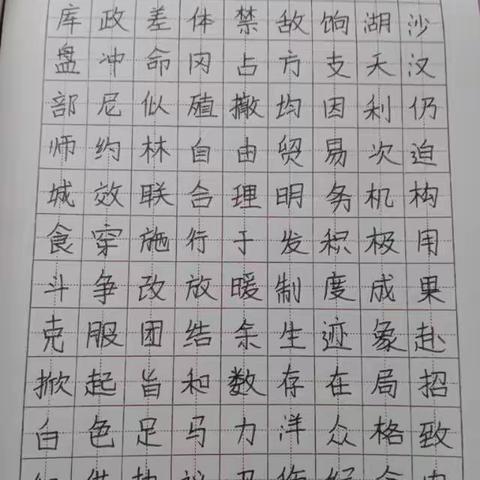 库政差体禁敌饷湖沙
盘冲命冈占方支天汉
部尼似殖撤均因利仍
师约林自由贸易次迫
城效联合理明务机构
食穿施行于发积极用
斗争改放暖制度成果
克服团结余生迹象赴
掀起旨和数存在局招
白色足马力洋众格致